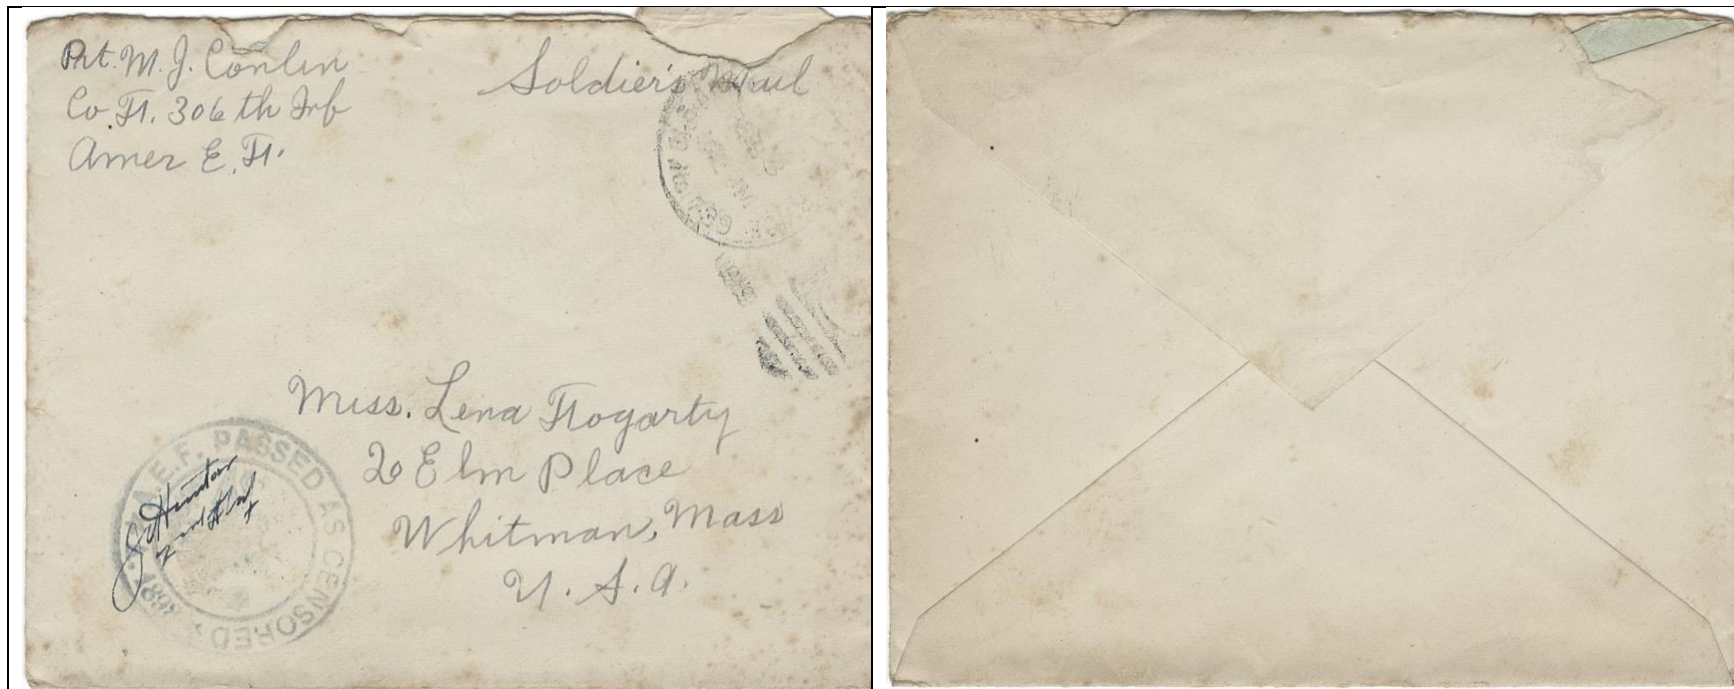 Pvt. M. J. Conlin
Co F. 306th Inf
Amer E. F.
Soldier's Mail
739
Miss. Lena Fogarty
20 Elm Place
Whitman, Mass
U. S. A.
A.E.F. PASSED AS CENSORED
Hunter